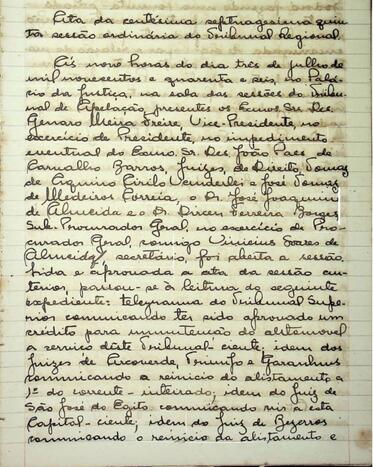 Ata da centésima septuagesima quin-
ta sessão ordinária do Tribunal Regional.
Ás nove horas do dia três de julho de
mil novecentos e quarenta e seis, no Palá-
cio da Justiça, na sala das sessões do Tribu-
nal de Apelação, presentes os Exmos. Srs. Des.
Genaro Freire, Vice-Presidente, no
exercício de Presidente, no impedimento
eventual do Exmo. Sr. Des. João Paes de
Carvalho Barros, Juizes, de Direito, Tomaz
de Aquino Cirilo Wanderlei e José Tomaz
de Medeiros Correia, o Dr. José Joaquim
de Almeida e o Dr. Dirceu Ferreira Borges,
Sub. Procurador Geral, no exercício de Pro-
curador Geral, comigo Vinicius Soares de
Almeida, secretário, foi aberta a sessão.
Lida e aprovada a ata da sessão an-
terior, passou-se à leitura do seguinte
expediente: telegrama do Tribunal Supe-
rior comunicando ter sido aprovado um
crédito para manutencão do automovel
a serviço dêste Tribunal - ciente; idem dos
Juizes de Arcoverde, Triunfo e Garanhuns
comunicando a reinicio do alistamento a
1º do corrente - inteirado; idem do Juiz de
São José do Egito comunicando vir a esta
Capital - ciente; idem do Juiz de Bezerros
comunicando o reinicio do alistamento e